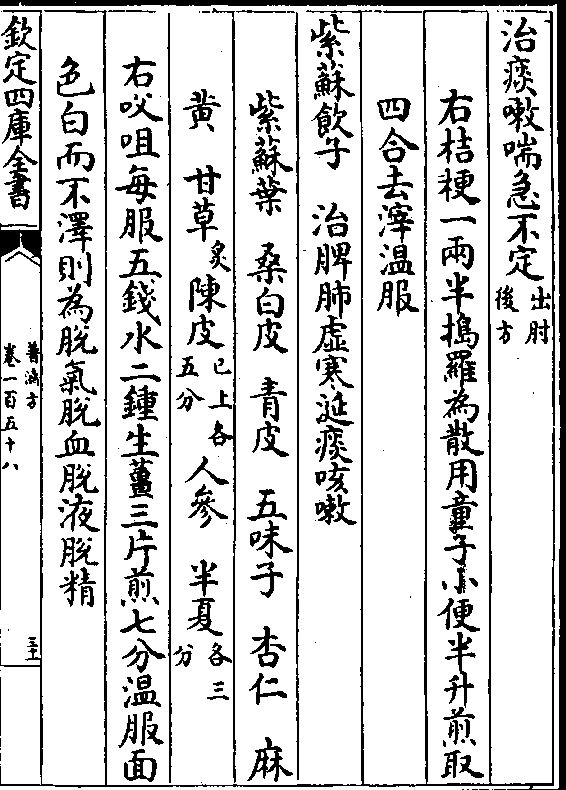 治痰嗽喘急不定出肘後方
右桔梗一兩半搗羅為散用童子小便半升煎取
四合去滓温服
紫蘇飲子　治脾肺虛寒涎痰咳嗽
紫蘇葉　桑白皮　青皮　五味子　杏仁　麻
黄　甘草炙陳皮已上各五分人參　半夏各三分
右㕮咀每服五錢水二鍾生薑三片煎七分温服面
色白而不澤則為脱氣脱血脱液脱精
欽定四庫全書
普濟方
卷一百五十八